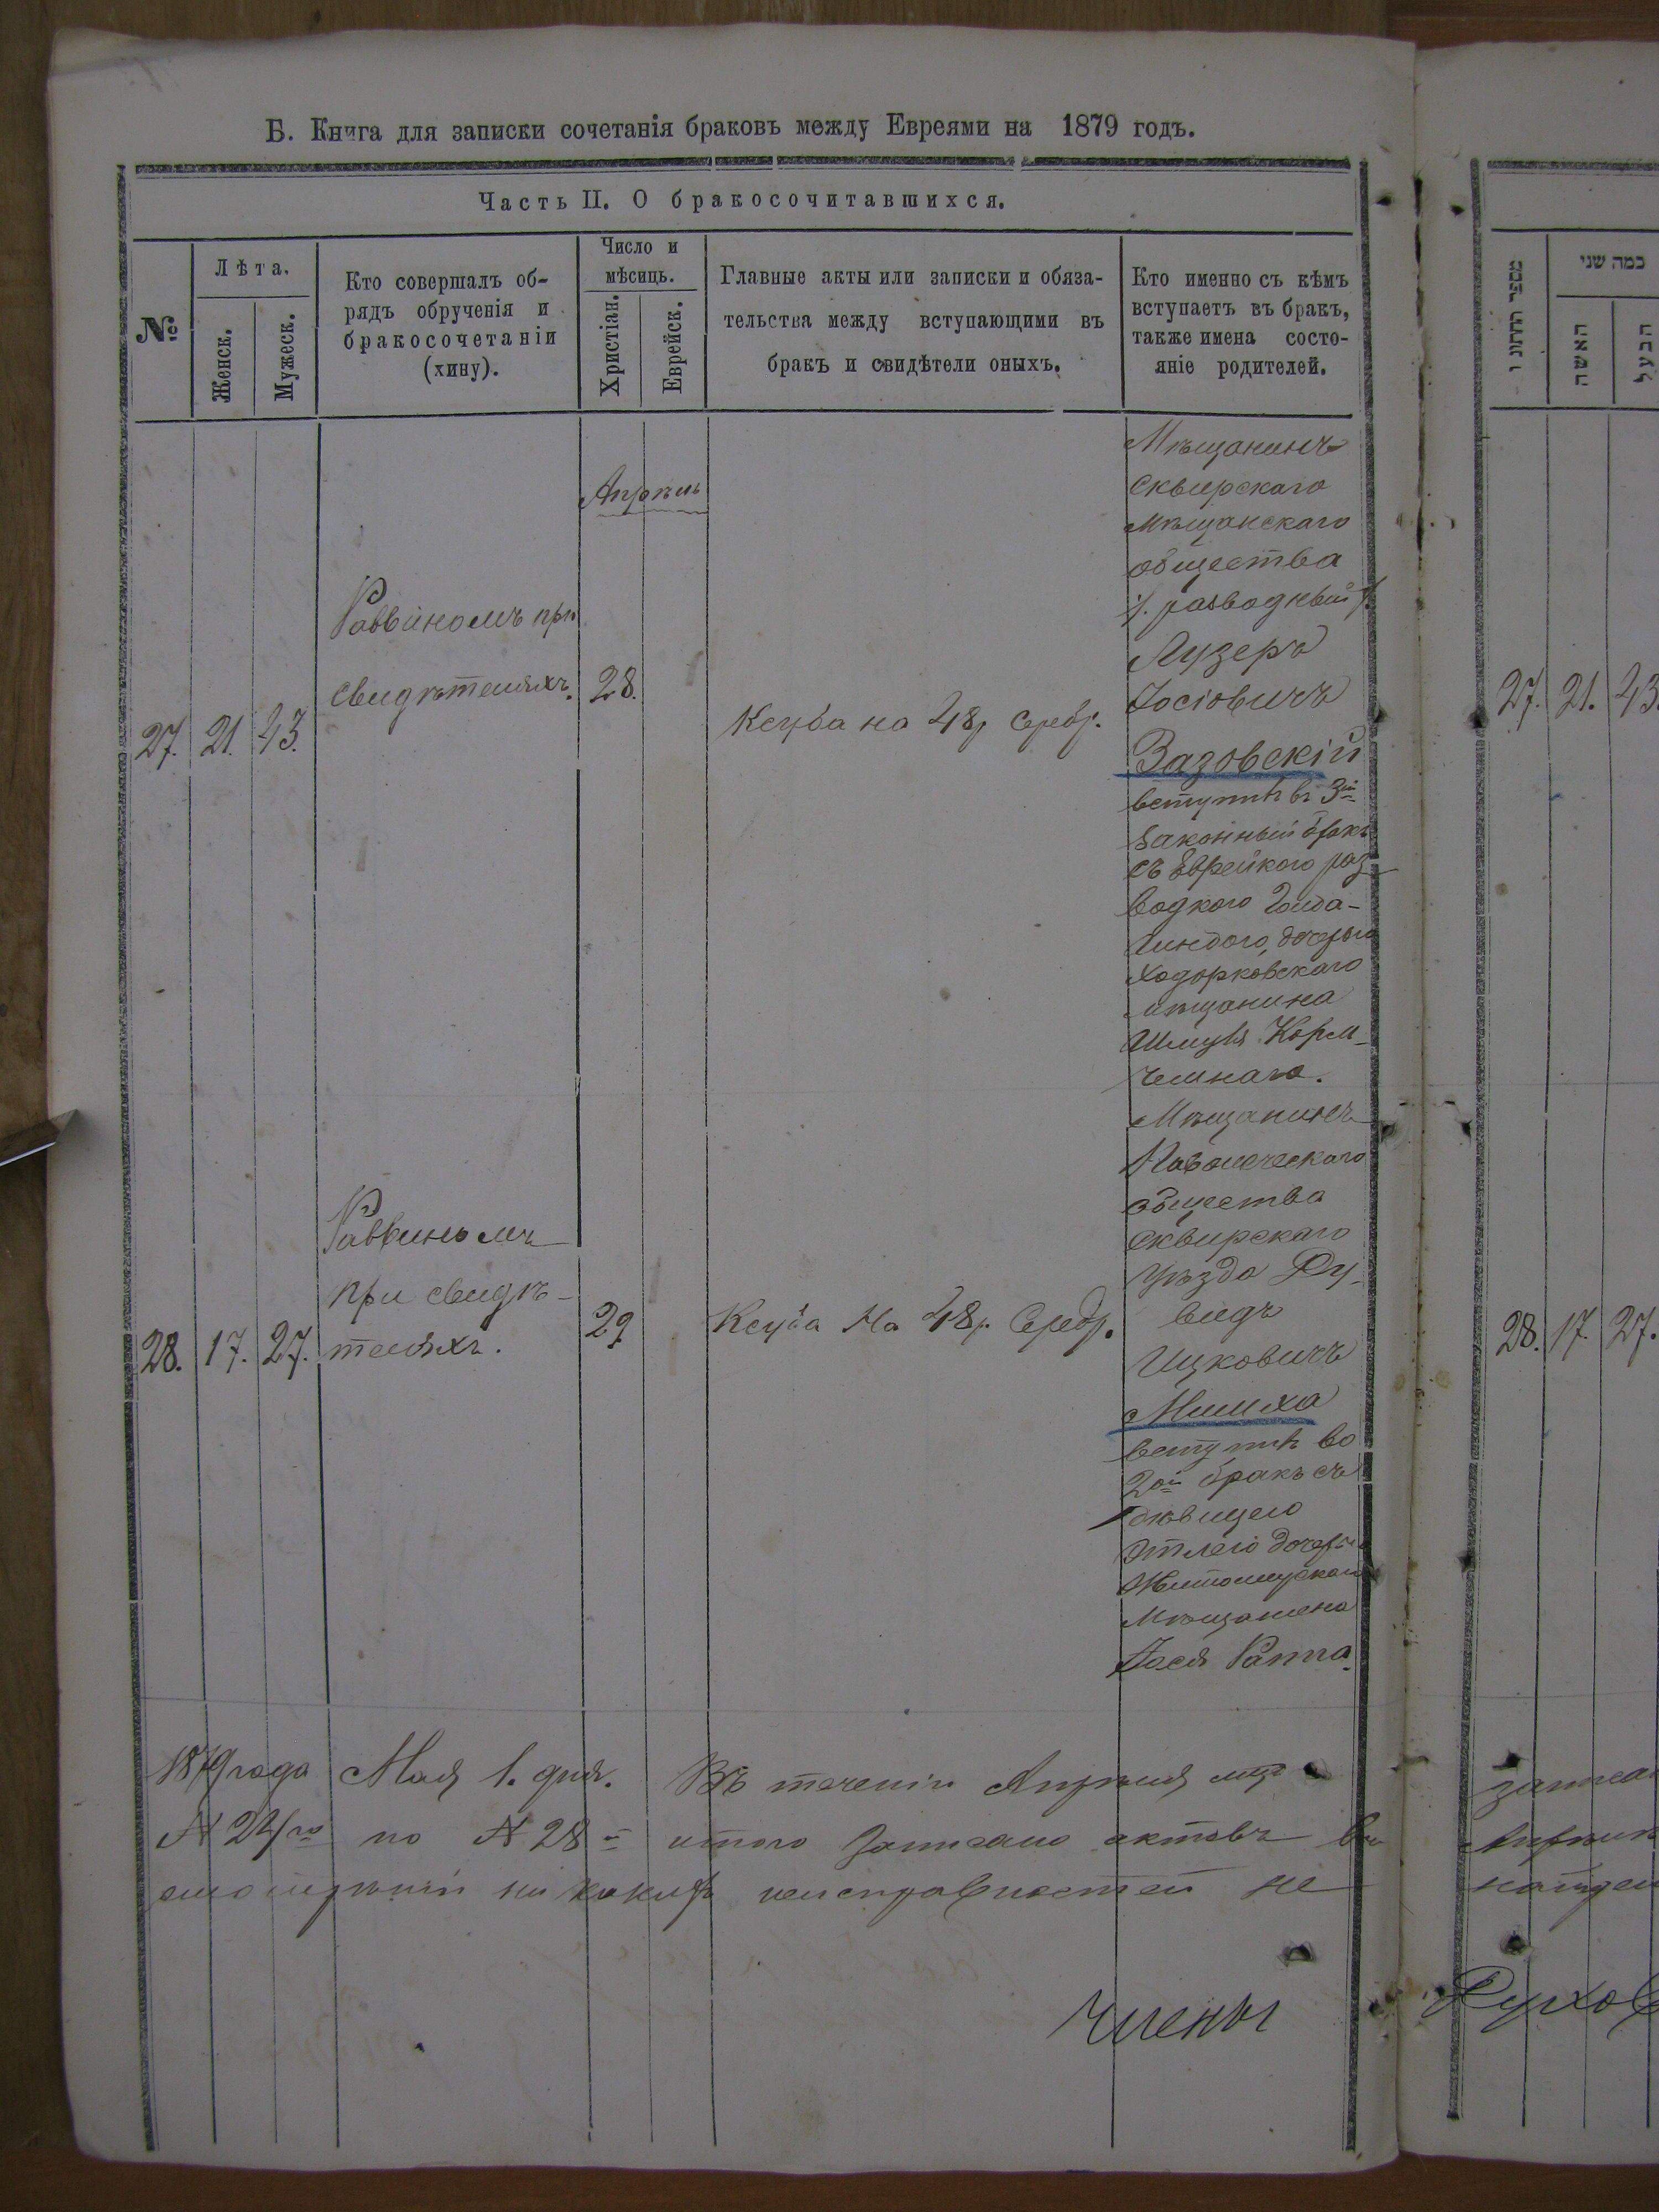 Б. Книга для записки сочетанія браковъ между Евреями на 1879 годъ.
Часть II. О бракосочитавшихся.
№
Лѣта.
Женск.
Мужеск.
Кто совершалъ об-
рядъ обрученія и
бракосочетаніи
(хину).
Число и
мѣсяцъ.
Христіан.
Еврейск.
Главные акты или записки и обяза-
тельства между вступающими въ
бракъ и свидѣтели оныхъ.
Кто именно съ кѣмъ
вступаетъ въ бракъ,
также имена состо-
яніе родителей.
27.
21.
43.
Раввиномъ при
свидѣтеляхъ.
Апрѣль
28.
Ксуба на 48 р Серебр.
Мѣщанинъ
Сквирскаго
мѣщанскаго
общества
разводный
Лузеръ
Іосіовичъ
Зазовскій
вступилъ въ 3й
законный бракъ
съ Еврейкою раз-
водкою Голда-
Линдою, дочерью
Ходорковскаго
мѣщанина
Шмуля Корм-
чемнаго.
28.
17.
27.
Раввиномъ
при свидѣ-
теляхъ.
29
Ксуба На 48 р. Серебр.
Мѣщанинъ
Паволочскаго
общества
Сквирскаго
уѣзда Ду-
видъ
Ицковичъ
вступилъ во
2ой бракъ съ
дѣвицею
Этлею дочерью
Житомирскаго
Мѣщанина
Іося Раппа.
1879 года Мая 1. дня. Въ теченіи Апрѣля
№ 24го по № 28й итого Записано актовъ
никакихъ неисправностей не
Члены
מספר
כמה שני
האשה
הבעל
27. 21. 43.
28. 17. 27.